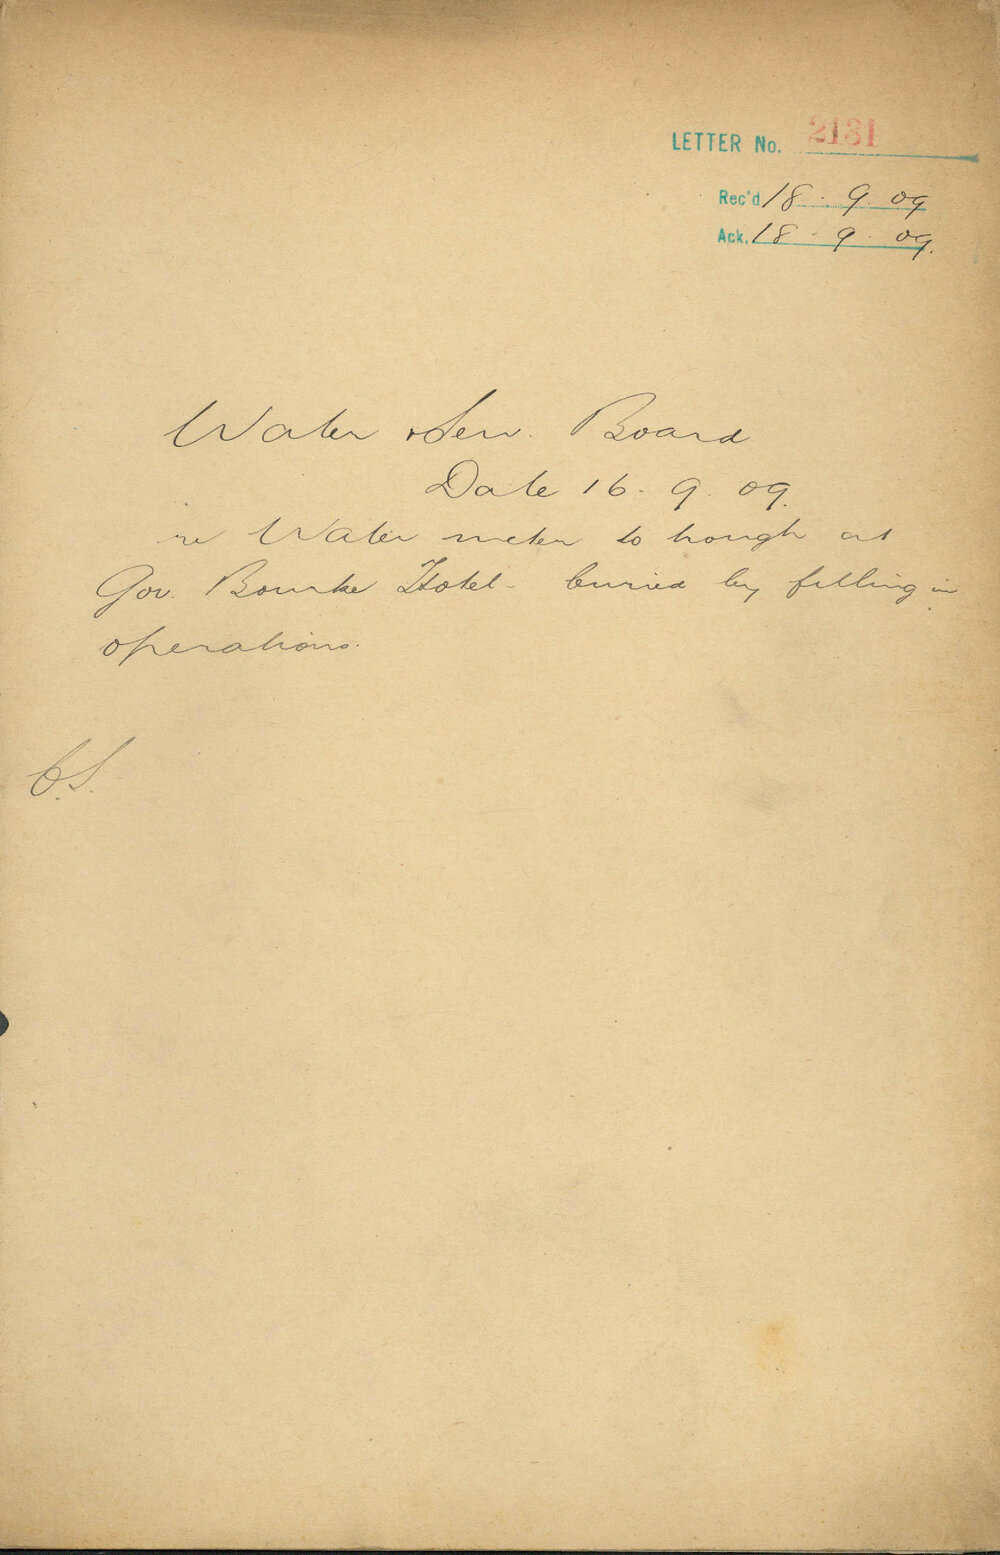 LETTER No. 2131
Rec'd 18.9.09
Ack. 18.9.09.
Water & Sew. Board
Date 16.9.09.
re Water meter to trough at
Gov. Bourke Hotel - buried by filling in
operations.
C.S.